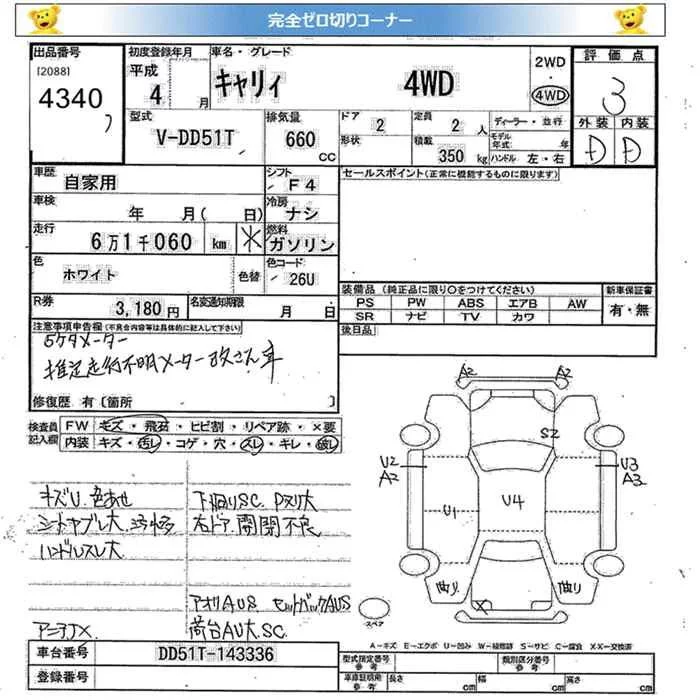 完全ゼロ切りコーナー
出品番号
[2088]
4340
初度登録年月
平成
4 月
車名・グレード
キャリィ 4WD
2WD
・
4WD
評価点
3
外装 内装
D D
型式
V-DD51T
排気量
660 CC
ドア 2
形状
定員 2 人
積載 350 kg
ディーラー・並行
モデル年式 年
ハンドル 左・右
車歴
自家用
シフト F4
車検
年 月( 日)
冷房 ナシ
走行
6万1千060 km ※
燃料 ガソリン
色
ホワイト 色替
色コード 26U
R券 3,180円
名変通知期限 月 日
セールスポイント(正常に機能するものに限ります)
装備品 (純正品に限り○をつけてください)
PS PW ABS エアB AW
SR ナビ TV カワ
新車保証書
有・無
後日品
注意事項申告欄(不具合内容等は具体的に記入して下さい)
5ケタメーター
推定走行不明メーター改ざん車
修復歴 有〔箇所 〕
検査員記入欄
FW キズ・飛石・ヒビ割・リペア跡・×要
内装 キズ・汚レ・コゲ・穴・スレ・キレ・破レ
キズU 色あせ
シートヤブレ大
ハンドルスレ大
下回りSC Pヌリ大
右ドア 開閉不良
アオリAUS セットバックAUS
荷台AU大.SC.
A2 A2
S2
U2
A2
U3
A3
U1
U4
曲り 曲り
X
スペア
A-キズ E-エクボ U-凹み W-補修跡 S-サビ C-腐食 X・XX-交換済
車台番号 DD51T-143336
登録番号
型式指定番号 参考
類別区分番号 参考
車庫証明用 参考 長さ cm 幅 cm 高さ cm